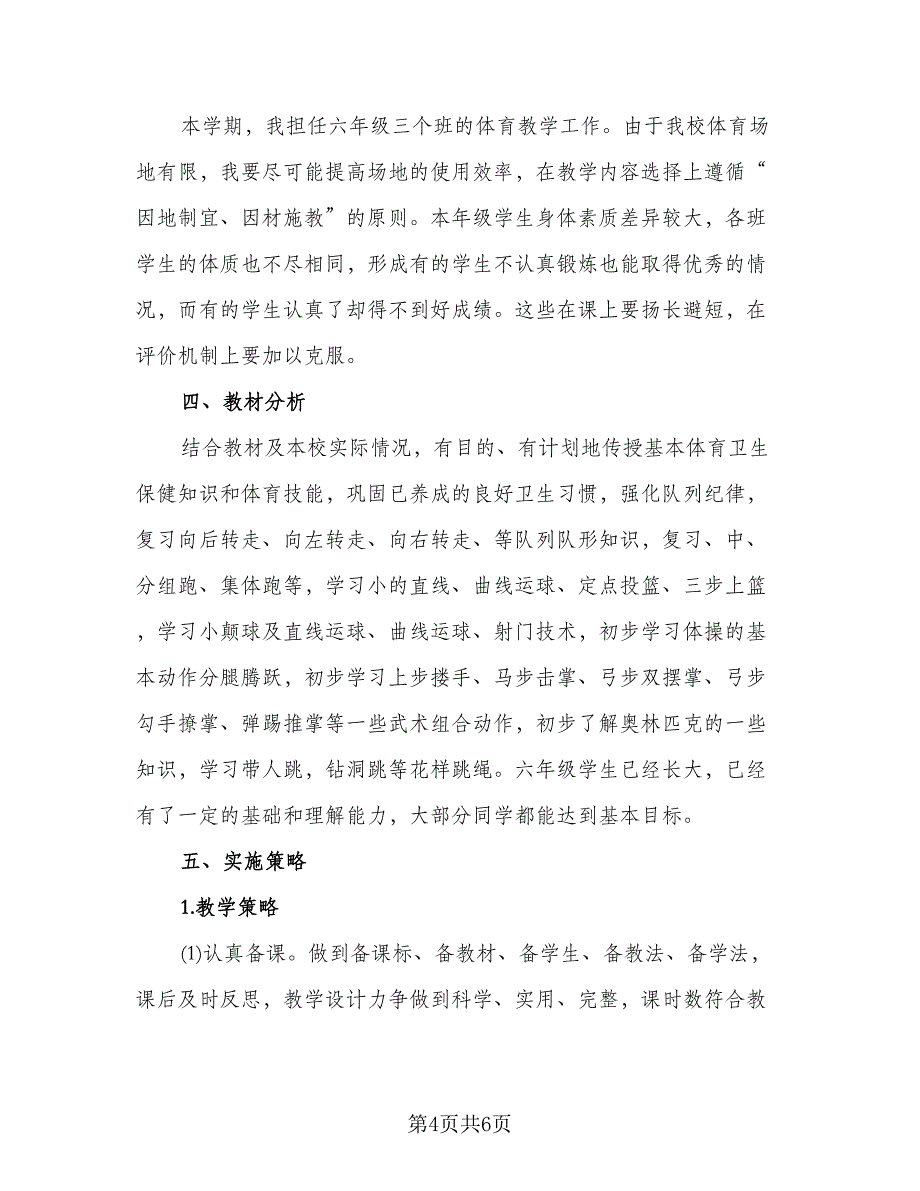 本学期，我担任六年级三个班的体育教学工作。由于我校体育场
地有限，我要尽可能提高场地的使用效率，在教学内容选择上遵循“
因地制宜、因材施教”的原则。本年级学生身体素质差异较大，各班
学生的体质也不尽相同，形成有的学生不认真锻炼也能取得优秀的情
况，而有的学生认真了却得不到好成绩。这些在课上要扬长避短，在
评价机制上要加以克服。
四、教材分析
结合教材及本校实际情况，有目的、有计划地传授基本体育卫生
保健知识和体育技能，巩固已养成的良好卫生习惯，强化队列纪律，
复习向后转走、向左转走、向右转走、等队列队形知识，复习、中、
分组跑、集体跑等，学习小的直线、曲线运球、定点投篮、三步上篮
，学习小颠球及直线运球、曲线运球、射门技术，初步学习体操的基
本动作分腿腾跃，初步学习上步搂手、马步击掌、弓步双摆掌、弓步
勾手撩掌、弹踢推掌等一些武术组合动作，初步了解奥林匹克的一些
知识，学习带人跳，钻洞跳等花样跳绳。六年级学生已经长大，已经
有了一定的基础和理解能力，大部分同学都能达到基本目标。
五、实施策略
1.教学策略
⑴认真备课。做到备课标、备教材、备学生、备教法、备学法，
课后及时反思，教学设计力争做到科学、实用、完整，课时数符合教
第4页共6页